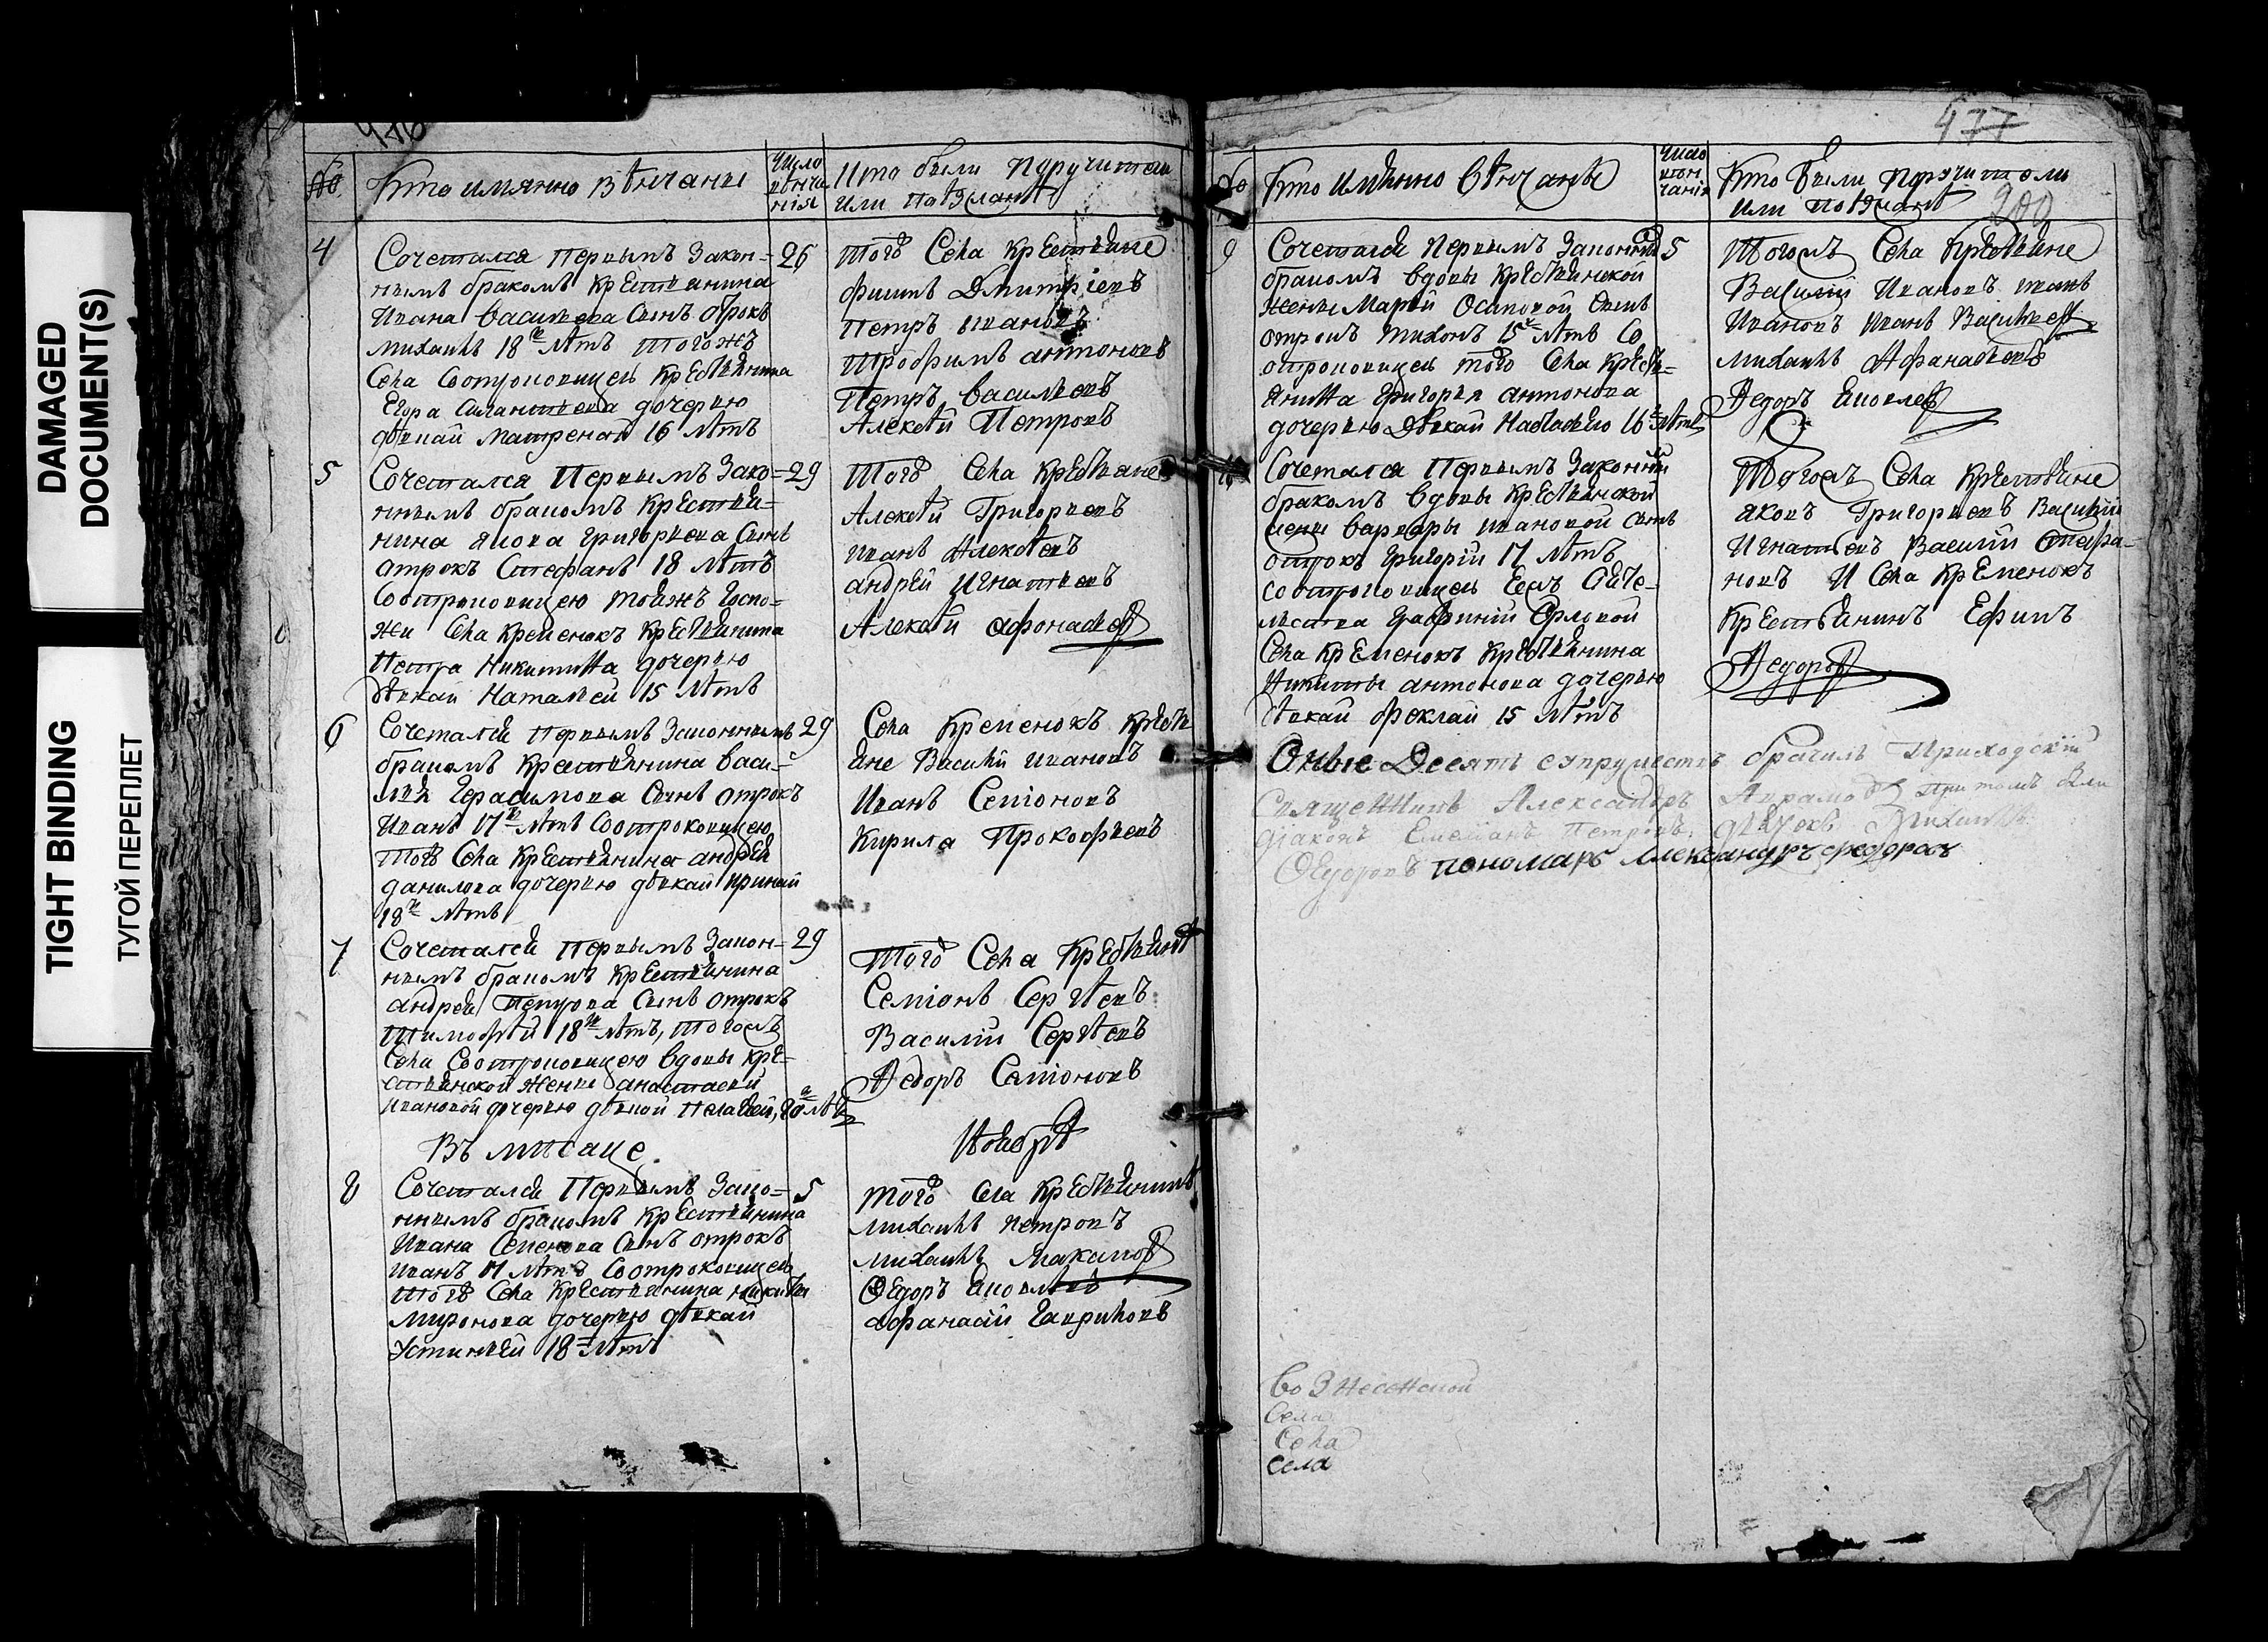 DAMAGED
DOCUMENT(S)
TIGHT BINDING
ТУГОЙ ПЕРЕПЛЕТ
476
№ Кто имянно вѣнчаны
Число вѣнча нія
Кто были поручители
или поѣзжанѣ
4
Сочетался первымъ закон=
нымъ бракомъ крестьянина
Ивана Васильева сынъ отрокъ
Михаилъ 18 лѣтъ тогожъ
села со отроковицею крестьянина
Егора дочерью
дѣвкай Матреной 16 лѣтъ
26
того села крестьяне
Филипъ Дмитріевъ
Петръ Ивановъ
Трофимъ Антоновъ
Петръ Васильевъ
Алексѣй Петровъ
5
Сочетался первымъ зако=
ннымъ бракомъ крестья=
нина Якова Григорьева сынъ
отрокъ Стефанъ 18 лѣтъ
со отроковицею тояжъ госпо=
жи села Кременокъ крестьянина
Петра Никитина дочерью
дѣвкай Натальей 15 лѣтъ
29
того села крестьяне
Алексѣй Григорьевъ
Иванъ Алексѣевъ
Андрей Игнатьевъ
Алексѣй Афонасьевъ
6
Сочетался первымъ законнымъ
бракомъ крестьянина Васи=
лья Герасимова сынъ отрокъ
Иванъ 17 лѣтъ со отроковицею
того села крестьянина Андрея
Данилова дочерью дѣвкай Ириной
18 лѣтъ
29
села Кременокъ крестья
яне Василій Ивановъ
Иванъ Семіоновъ
Кирила Прокофьевъ
7
Сочетался первымъ закон=
нымъ бракомъ крестьянина
Андрея Петрова сынъ отрокъ
Тимофѣй 18 лѣтъ, тогожъ
села со отроковицею вдовы кре=
стьянской женки Анастасіи
Ивановой дочерью дѣвкой Пелагеей, 20 лѣтъ
29
того села крестьянѣ
Семіонъ Сергѣевъ
Василій Сергѣевъ
Федоръ Семіоновъ
Въ мѣсяце
Ноябрѣ
8
Сочетался первымъ зако=
ннымъ бракомъ крестьянина
Ивана Семенова сынъ отрокъ
Иванъ 17 лѣтъ со отроковицею
того села крестьянина Никиты
Миронова дочерью дѣвкай
Устиньей 18 лѣтъ
5
того села крестьянинъ
Михаилъ Петровъ
Михаилъ Макимовъ
Ѳедоръ Яковлевъ
Афанасій Гавриловъ
477
200
№ Кто имянно вѣнчаны
Число вѣнчанія
Кто были поручители
или поѣзжанѣ
9
Сочетался первымъ законнымъ
бракомъ вдовы крестьянской
женки Марьи Осиповой сынъ
отрокъ Тихонъ 15 лѣтъ со
отроковицею того села крестья=
янина Григорья Антонова
дочерью дѣвкай Настасьею 16 лѣтъ
5
тогожъ села крестьяне
Василій Ивановъ Иванъ
Ивановъ Иванъ Васильевъ
Михаилъ Афанасьевъ
Федоръ Яковлевъ
10
Сочетался первымъ законнымъ
бракомъ вдовы крестьянской
женки Варвары Ивановой сынъ
отрокъ Григорій 17 лѣтъ
со отроковицею Еяжъ Сіяте=
льства Графини Орловой
села Кременокъ крестьянина
Никиты Антонова дочерью
дѣвкай Феклай 15 лѣтъ
тогожъ села крестьяне
Яковъ Григорьевъ Василій
Игнатьевъ Василій Стефа=
новъ и села Кременокъ
крестьянинъ Ефимъ
Федоровъ
Оные десять супружествъ брачилъ приходскій
священникъ Александръ Аврамовъ при томъ были
діаконъ Емельянъ Петровъ дьячекъ
Ѳедоровъ пономарь Александръ Федоровъ
Вознесенской
Села
Села
села